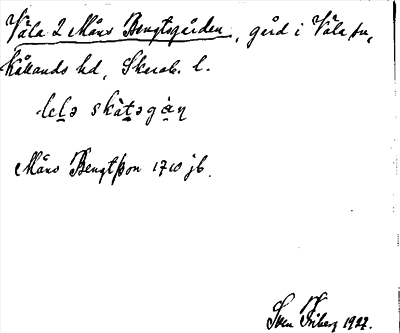 Våla 2 Måns Bengtsgården, gård i Våla sn,
Kållands hd, Skarab. l.
Måns Bengtsson 1710 jb.
Sven Friberg 1927.